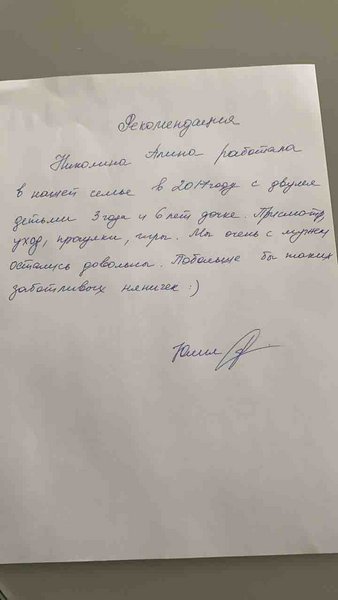 Рекомендация
Николина Арина работала
в нашей семье в 2017 году с двумя
детьми 3 года и 6 лет дочке. Присмотр,
уход, прогулки, игры. Мы очень с мужем
остались довольны. Побольше бы таких
заботливых нянечек :)
Юлия